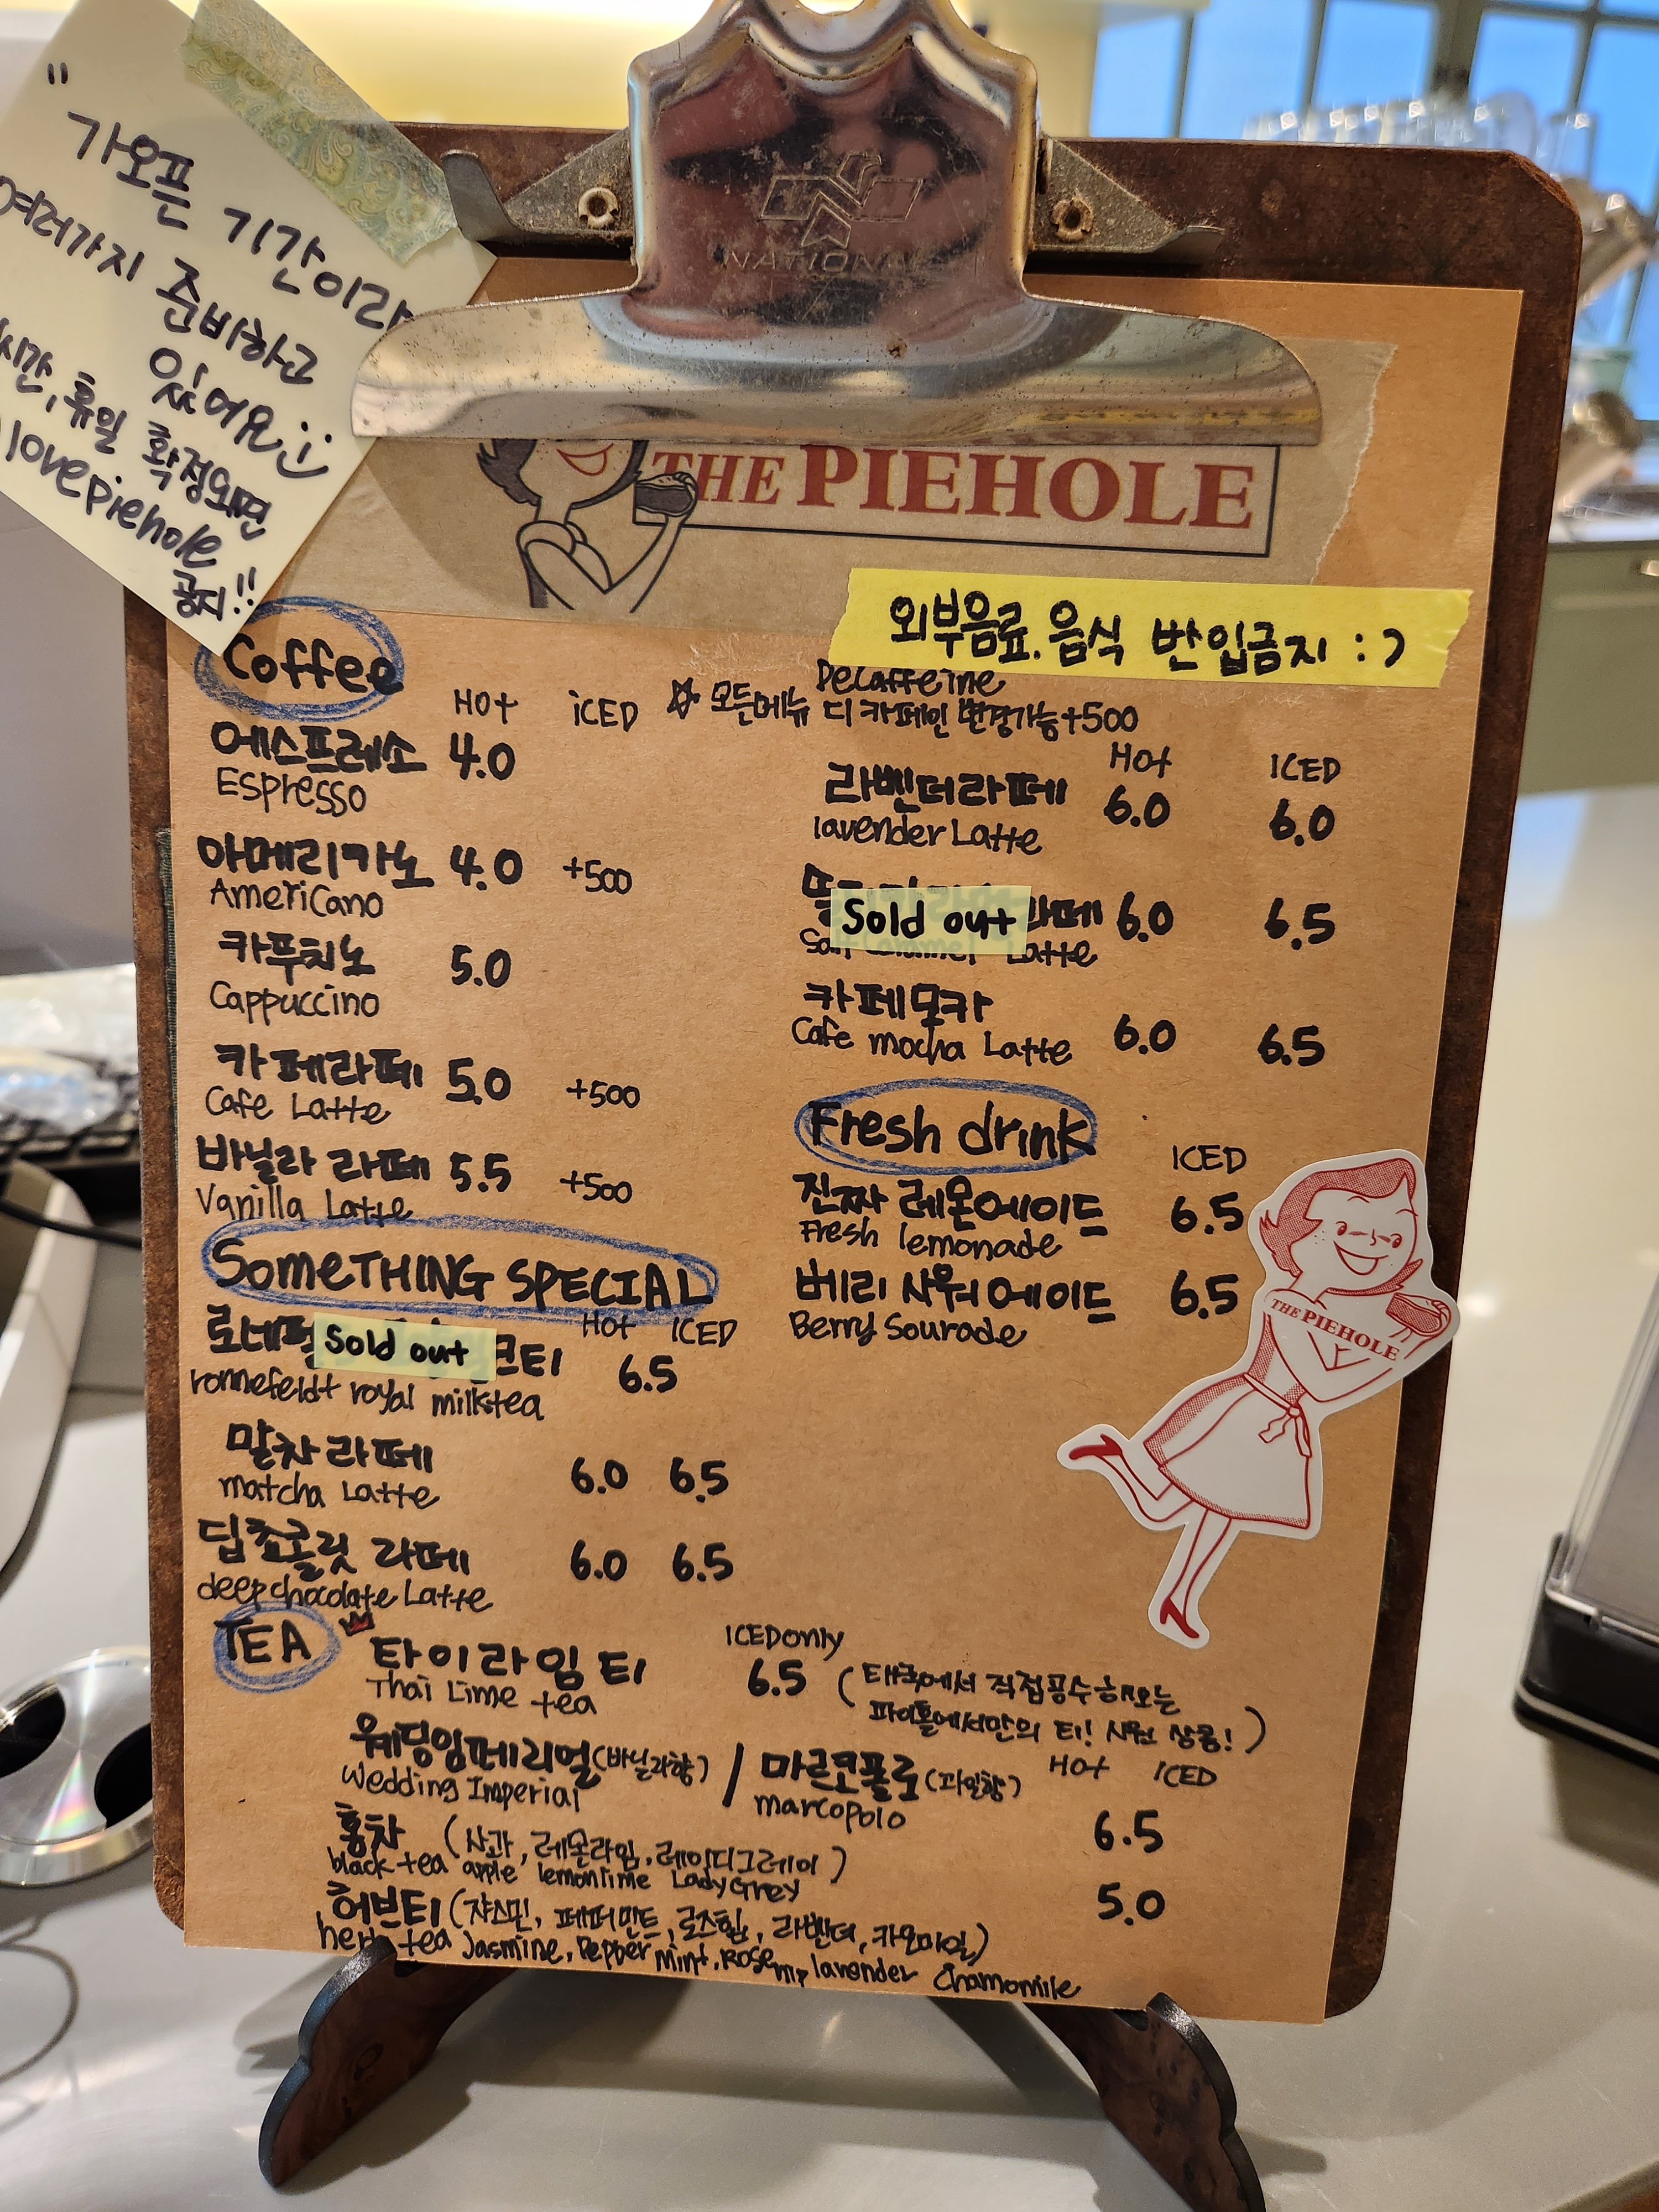 "가오픈 기간이라
여러가지 준비하고
있어요
시간, 휴일 확정되면
lovepiehole
공지!!
NATIONAL
THE PIEHOLE
외부음료. 음식 반입금지 :)
Coffee
HOT ICED
☆ 모든메뉴 디카페인 변경가능+500
Decaffeine
에스프레소 4.0
Espresso
아메리카노 4.0 +500
AmeriCano
카푸치노 5.0
Cappuccino
카페라떼 5.0 +500
Cafe Latte
바닐라 라떼 5.5 +500
Vanilla Latte
HOT ICED
라벤더라떼 6.0 6.0
lavender Latte
Sold out 라떼 6.0 6.5
Latte
카페모카
Cafe mocha Latte 6.0 6.5
Fresh drink
ICED
진짜 레몬에이드 6.5
Fresh lemonade
베리 사워에이드 6.5
Berry Sourade
THE PIEHOLE
SomeTHING SPECIAL
HOT ICED
로네펠 Sold out 크티 6.5
ronnefeldt royal milktea
말차라떼 6.0 6.5
matcha Latte
딥초콜릿 라떼 6.0 6.5
deepchocolate Latte
TEA
ICED only
타이라임 티 6.5 (태국에서 직접공수해오는
Thai Lime tea
파이홀에서만의 티! 시원 상콤!)
웨딩임페리얼(바닐라향) / 마르코폴로(과일향) HOT ICED
Wedding Imperial marcopolo
홍차 (사과, 레몬라임, 레이디그레이) 6.5
black tea apple lemonlime Lady Grey
허브티 (쟈스민, 페퍼민트, 로즈힙, 라벤더, 카모마일) 5.0
herb tea Jasmine, Pepper mint, Rose hip lavender Chamomile